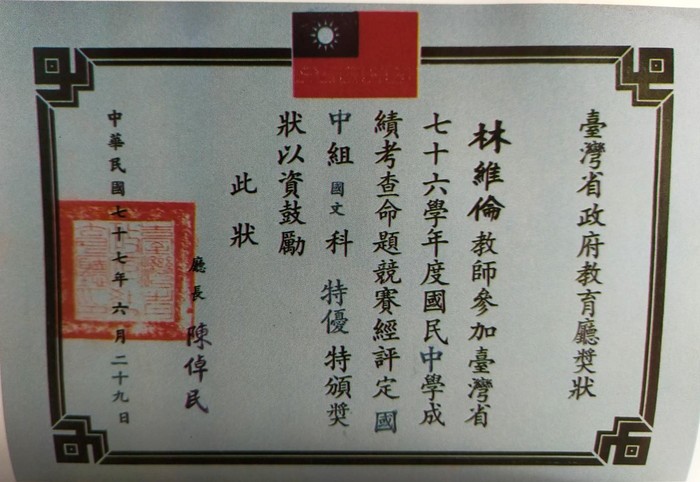 臺灣省政府教育廳獎狀
林維倫教師參加臺灣省
七十六學年度國民中學成
績考查命題競賽經評定國
中組國文科特優特頒獎
狀以資鼓勵
此狀
廳長陳倬民
中華民國七十七年六月二十九日